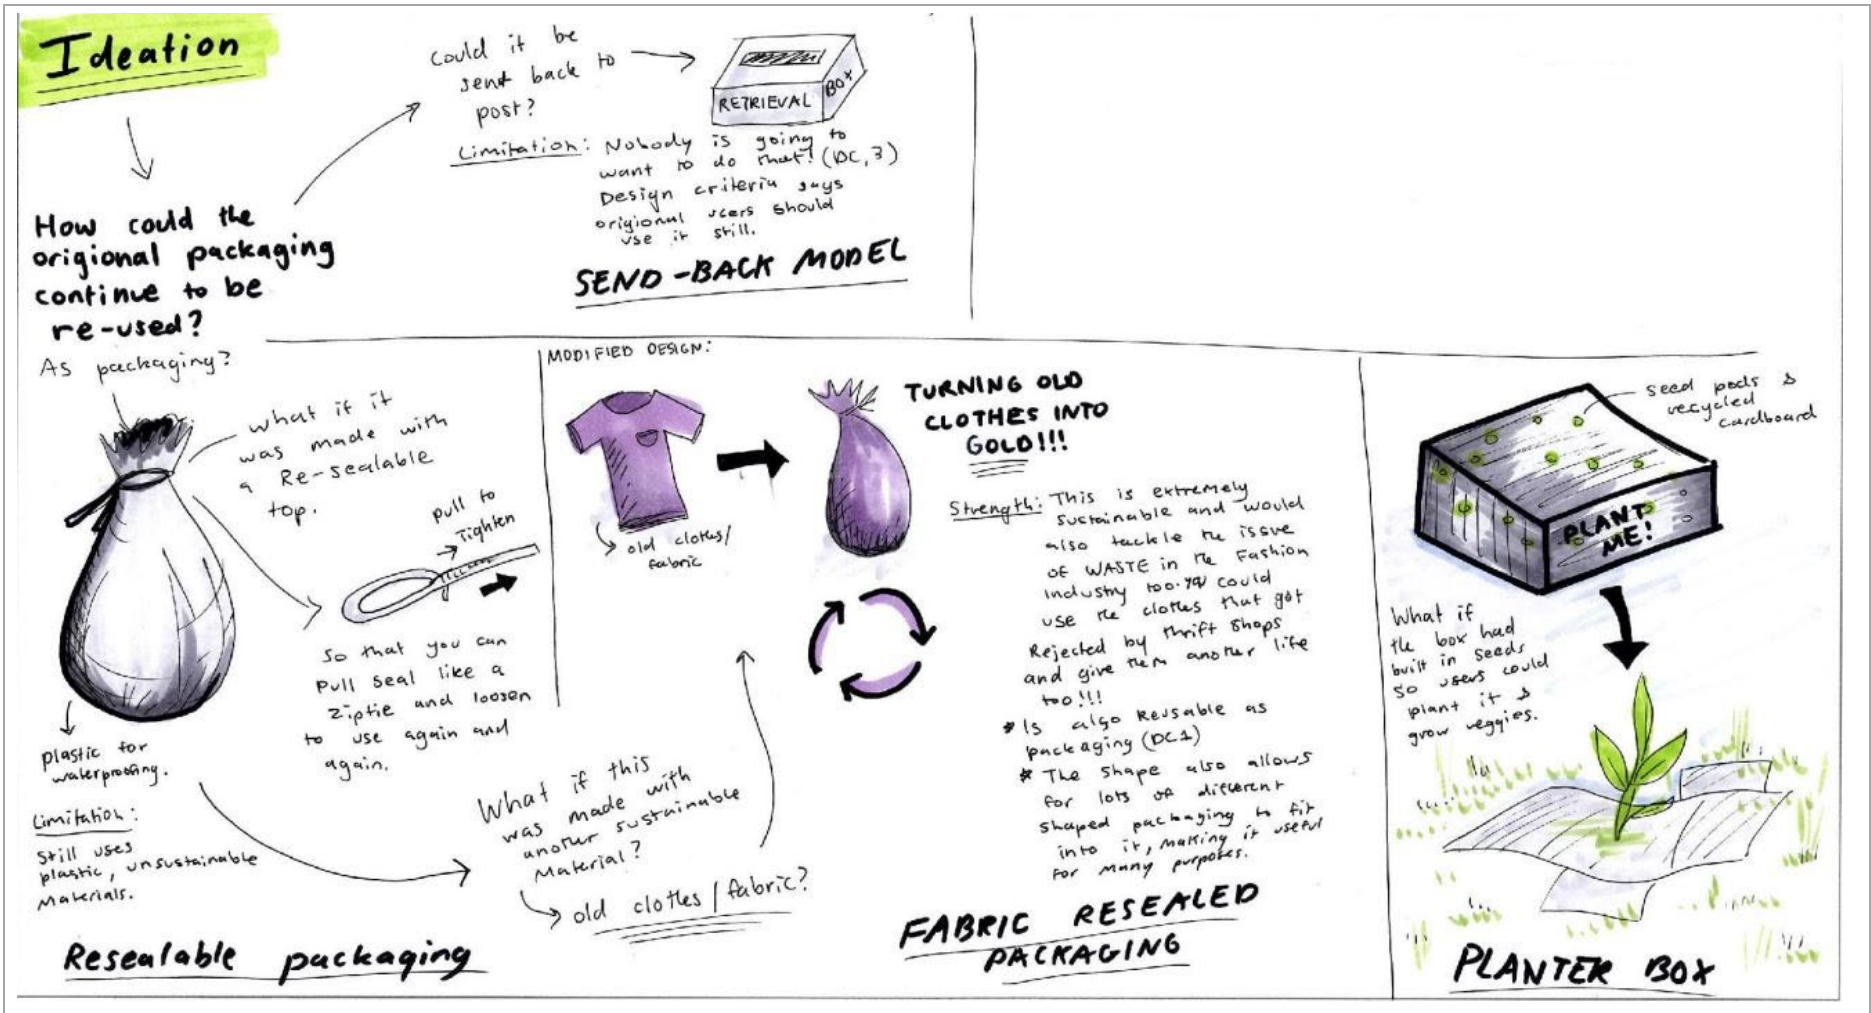 Ideation
How could the
origional packaging
continue to be
re-used?
Could it be
send back to
post?
RETRIEVAL BOX
Limitation: Nobody is going to
want to do that! (DC, 3)
Design criteria says
origional users should
use it still.
SEND-BACK MODEL
As packaging?
what if it
was made with
a Re-sealable
top.
pull to
Tighten
So that you can
pull seal like a
Ziptie and loosen
to use again and
again.
plastic for
waterproofing.
Limitation:
Still uses
plastic, unsustainable
Materials.
Resealable packaging
What if this
was made with
another sustainable
Material?
old clothes/fabric?
MODIFIED DESIGN:
old clothes/
fabric
TURNING OLD
CLOTHES INTO
GOLD!!!
Strength: This is extremely
sustainable and would
also tackle the issue
OF WASTE in the Fashion
Industry too. could
use the clothes that got
Rejected by thrift shops
and give them another life
too!!!
* Is also Reusable as
packaging (DC1)
* The shape also allows
for lots of different
shaped packaging to fit
into it, making it useful
for many purposes.
FABRIC RESEALED
PACKAGING
seed pods &
recycled
cardboard
PLANT
ME!
What if
the box had
built in seeds
so users could
plant it &
grow veggies.
PLANTER BOX